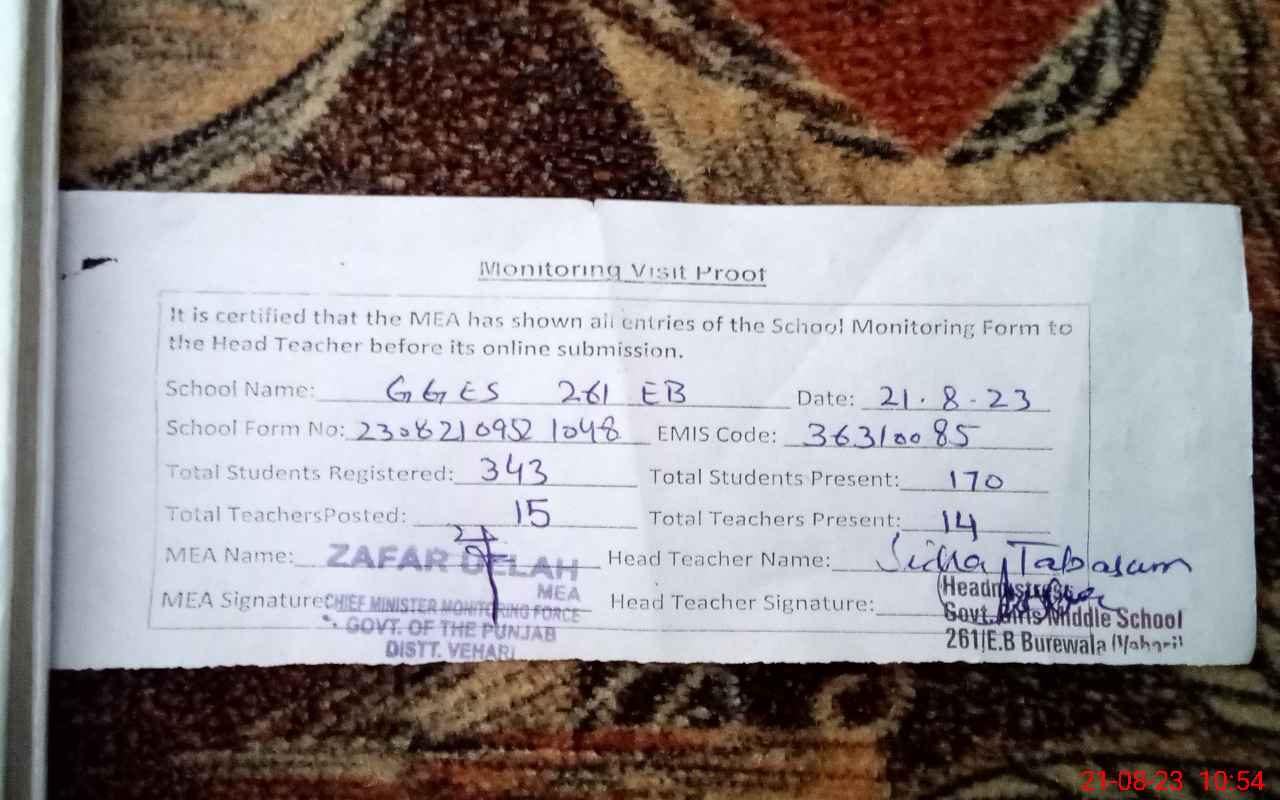 Monitoring Visit Proof
It is certified that the MEA has shown all entries of the School Monitoring Form to
the Head Teacher before its online submission.
School Name: GGES 261 EB Date: 21.8.23
School Form No: 23082109521048 EMIS Code: 36310085
Total Students Registered: 343 Total Students Present: 170
Total TeachersPosted: 15 Total Teachers Present: 14
MEA Name: ZAFAR Head Teacher Name: Tabasum
MEA
MEA Signature: Head Teacher Signature:
CHIEF MINISTER MONITORING FORCE
GOVT. OF THE PUNJAB
DISTT. VEHARI
Headmistress
Govt. Girls Middle School
261/E.B Burewala (Vehari)
21-08-23 10:54